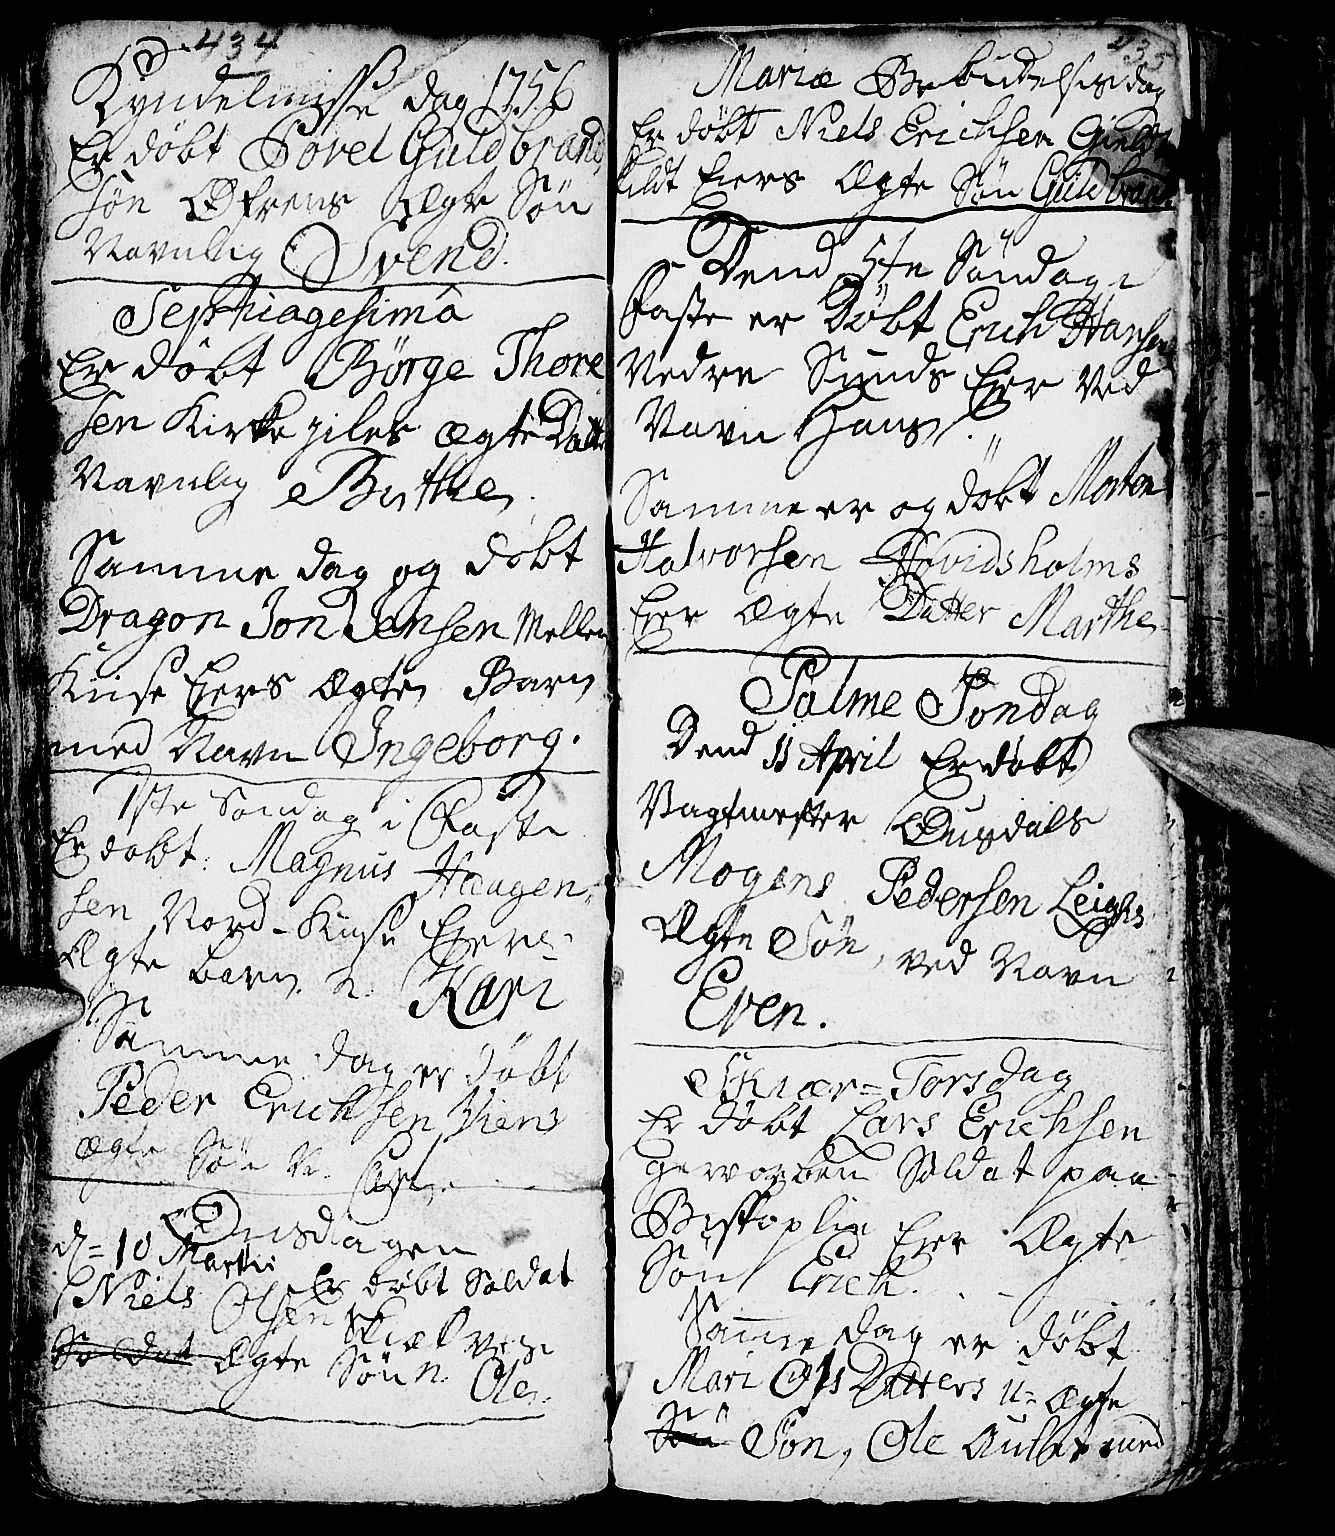 434
Kyndelmisse dag 1756
Er döbt Povel Guldbrand
søn Øfrens Ægte Søn
Navnlig Svend.
Septuagesima
Er döbt Børge Thore
sen Kirke ægte Datter
Navnlig Birthe
Samme dag og döbt
Dragon Jon Jensen Mellem
Kiise Eiers Ægte Barn
med Navn Ingeborg.
1ste Søndag i Faste
Er döbt: Magnus Haagen
sen Nord-Kiise Eiers
Ægte barn n. Kari
Samme dag er döbt
Peder Erichsen
ægte Søn N.
Onsdagen
d= 10 Martii
Er döbt Soldat
Niels Olsen
Soldat Ægte Søn n. Ole
435
Mariæ Bebudelses dag
Er döbt Niels Erichsen
Eiers Ægte Søn Guldbrand
Dend 5te Søndag i
Faste er Døbt Erich Hansen
Nedre Sunds Eier Ved
Navn Hans.
Samme er og döbt Morten
Halvorsen Hovidsholms
Eier Ægte Datter Marthe
Palme Søndag
Dend 11 April Er döbt
Vagtmester
Mogens Pedersen Leighs
Ægte Søn, ved Navn
Even.
Skiær=Torsdag
Er döbt Lars Erichsen
geworben Soldat paa
Bispoplie Eier Ægte
Søn Erich.
Samme dag er döbt
Mari Ols Datters u=ægte
Søn Søn, Ole med